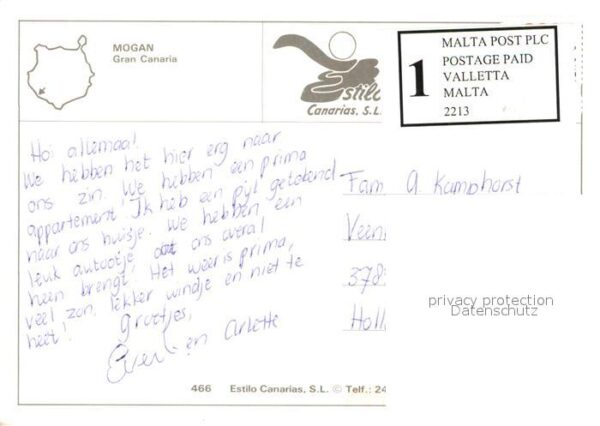 MOGAN
Gran Canaria
Estilo
Canarias, S.L.
1
MALTA POST PLC
POSTAGE PAID
VALLETTA
MALTA
2213
Hoi allemaal!
We hebben het hier erg naar
ons zin. We hebben een prima
appartement! Ik heb een pijl getekend
naar ons huisje. We hebben een
leuk autootje dat ons overal
heen brengt! Het weer is prima,
veel zon, lekker windje en niet te
heet!
Groetjes,
en Arlette
Fam A. Kamphorst
Veen
378
Holl
privacy protection
Datenschutz
466 Estilo Canarias, S.L. © Telf.: 24